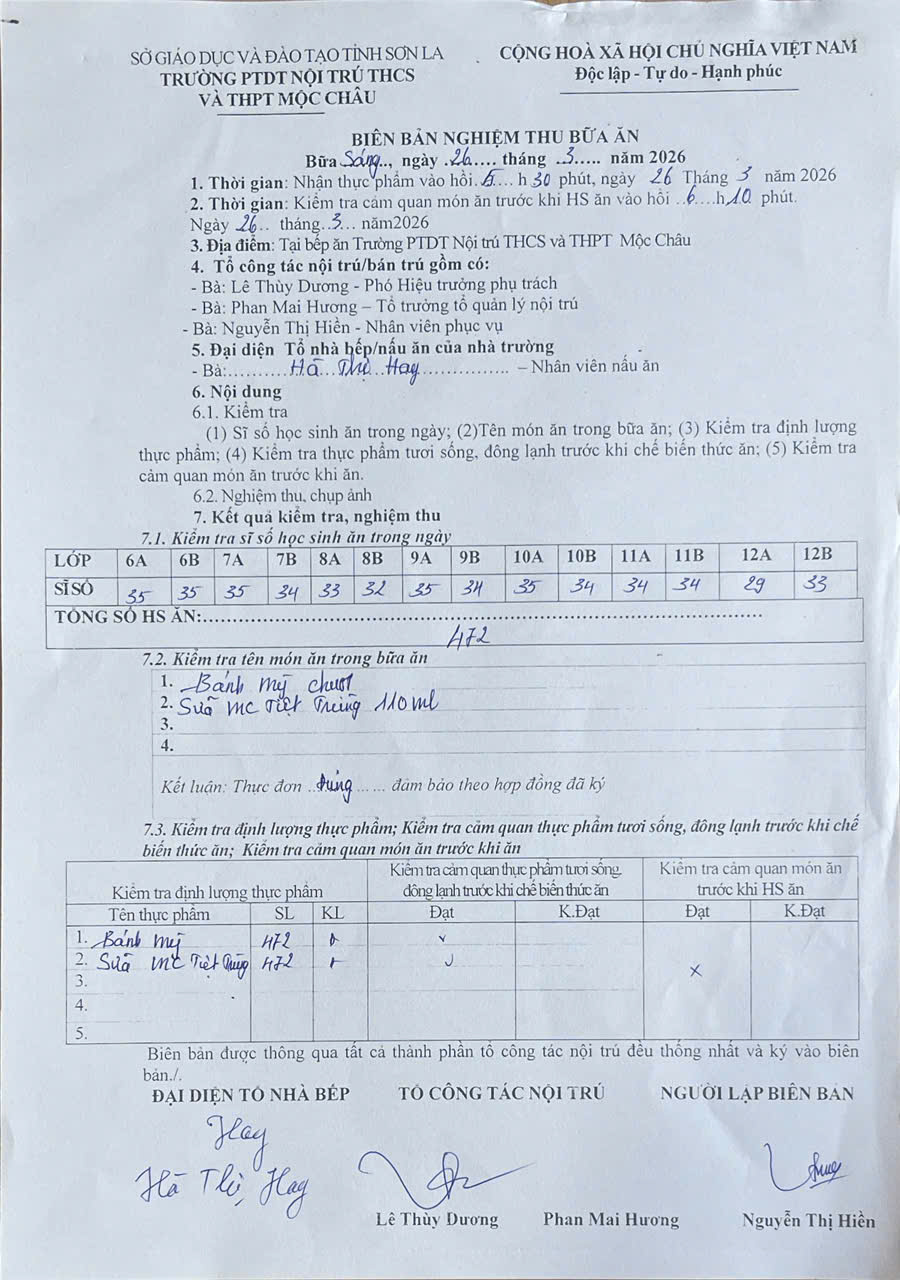 SỞ GIÁO DỤC VÀ ĐÀO TẠO TỈNH SƠN LA
TRƯỜNG PTDT NỘI TRÚ THCS
VÀ THPT MỘC CHÂU
CỘNG HOÀ XÃ HỘI CHỦ NGHĨA VIỆT NAM
Độc lập - Tự do - Hạnh phúc
BIÊN BẢN NGHIỆM THU BỮA ĂN
Bữa Sáng.., ngày .26.... tháng ..3..... năm 2026
1. Thời gian: Nhận thực phẩm vào hồi.5.... h 30 phút, ngày 26 Tháng 3 năm 2026
2. Thời gian: Kiểm tra cảm quan món ăn trước khi HS ăn vào hồi ..6....h10 phút.
Ngày 26.. tháng..3... năm2026
3. Địa điểm: Tại bếp ăn Trường PTDT Nội trú THCS và THPT Mộc Châu
4. Tổ công tác nội trú/bán trú gồm có:
- Bà: Lê Thùy Dương - Phó Hiệu trưởng phụ trách
- Bà: Phan Mai Hương – Tổ trưởng tổ quản lý nội trú
- Bà: Nguyễn Thị Hiền - Nhân viên phục vụ
5. Đại diện Tổ nhà bếp/nấu ăn của nhà trường
- Bà:..........Hà...Thị...Hay................ – Nhân viên nấu ăn
6. Nội dung
6.1. Kiểm tra
(1) Sĩ số học sinh ăn trong ngày; (2)Tên món ăn trong bữa ăn; (3) Kiểm tra định lượng
thực phẩm; (4) Kiểm tra thực phẩm tươi sống, đông lạnh trước khi chế biến thức ăn; (5) Kiểm tra
cảm quan món ăn trước khi ăn.
6.2. Nghiệm thu, chụp ảnh
7. Kết quả kiểm tra, nghiệm thu
7.1. Kiểm tra sĩ số học sinh ăn trong ngày
LỚP 6A 6B 7A 7B 8A 8B 9A 9B 10A 10B 11A 11B 12A 12B
SĨ SỐ 35 35 35 34 33 32 35 34 35 34 34 34 29 33
TỔNG SỐ HS ĂN:..........................................................................
472
7.2. Kiểm tra tên món ăn trong bữa ăn
1. Bánh mỳ
2. Sữa MC Tiệt Trùng 110ml
3.
4.
Kết luận: Thực đơn ..đúng...... đảm bảo theo hợp đồng đã ký
7.3. Kiểm tra định lượng thực phẩm; Kiểm tra cảm quan thực phẩm tươi sống, đông lạnh trước khi chế
biến thức ăn; Kiểm tra cảm quan món ăn trước khi ăn
Kiểm tra định lượng thực phẩm
Kiểm tra cảm quan thực phẩm tươi sống,
đông lạnh trước khi chế biến thức ăn
Kiểm tra cảm quan món ăn
trước khi HS ăn
Tên thực phẩm SL KL Đạt K.Đạt Đạt K.Đạt
1. Bánh mỳ 472 v
2. Sữa MC Tiệt Trùng 472 v
x
3.
4.
5.
Biên bản được thông qua tất cả thành phần tổ công tác nội trú đều thống nhất và ký vào biên
bản./.
ĐẠI DIỆN TỔ NHÀ BẾP TỔ CÔNG TÁC NỘI TRÚ NGƯỜI LẬP BIÊN BẢN
Hay
Hà Thị Hay
Lê Thùy Dương Phan Mai Hương Nguyễn Thị Hiền